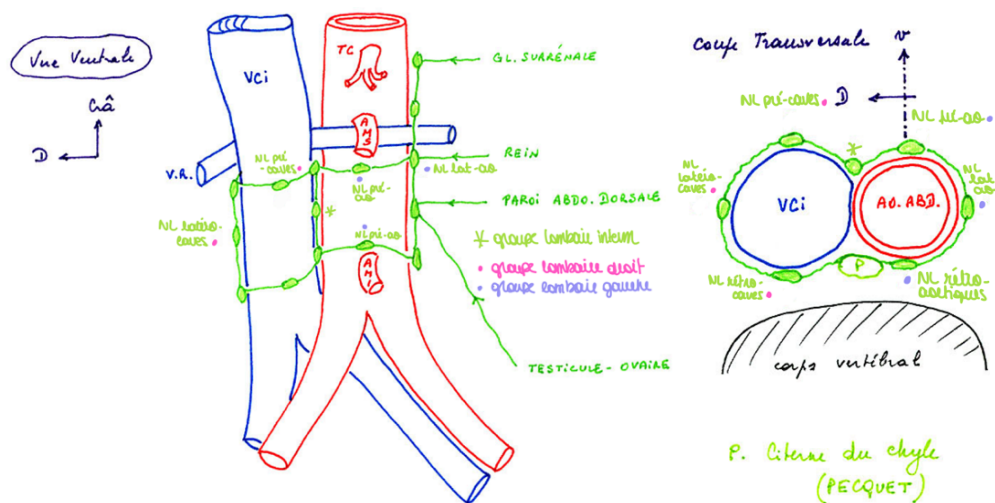 Vue Ventrale
Crâ
D
VCi
TC
AMS
V.R.
NL pré
-caves
NL pré-
ao
NL lat-ao
NL latéro
caves
NL pré-ao
AMI
GL. SURRÉNALE
REIN
PAROI ABDO. DORSALE
* groupe lombaire interm
• groupe lombaire droit
• groupe lombaire gauche
TESTICULE - OVAIRE
Coupe Transversale
v
D
NL pré-caves
NL pré-ao
NL latéro-
caves
*
NL lat
ao
VCi
AO. ABD.
P
NL rétro-
caves
NL rétro-
aortiques
corps vertébral
P. Citerne du chyle
(PECQUET)